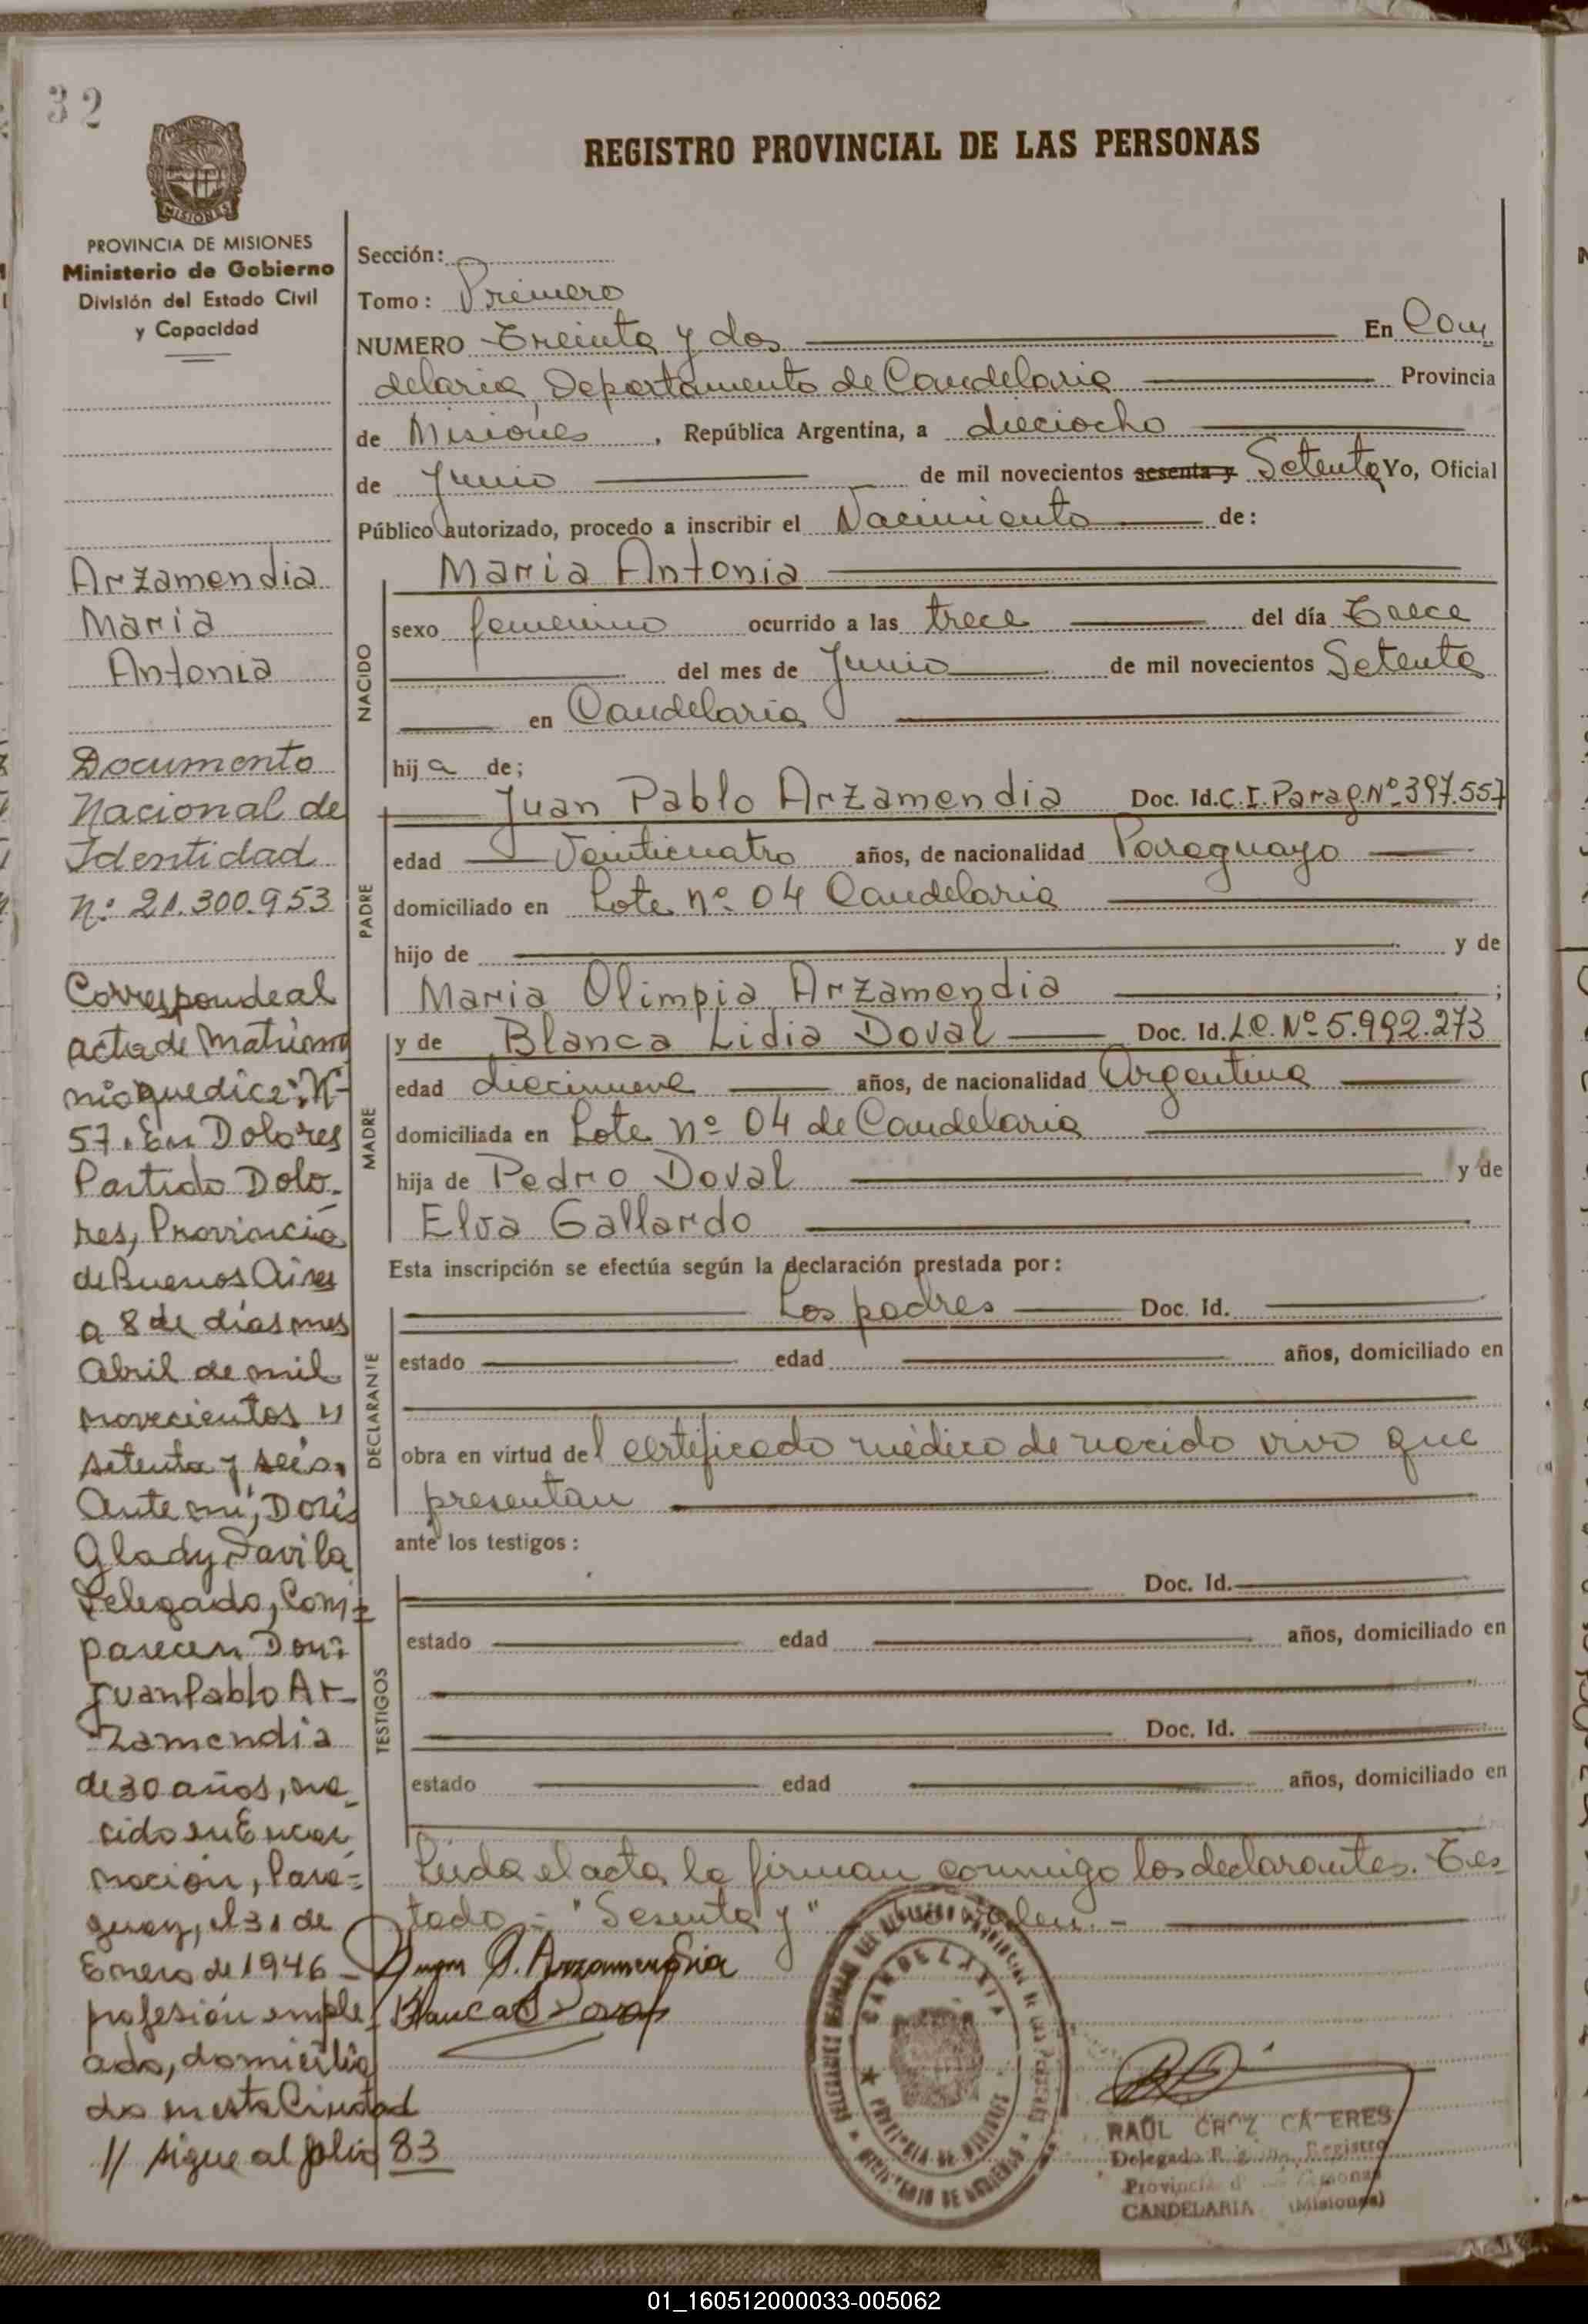 32
MISIONES
PROVINCIA DE MISIONES
Ministerio de Gobierno
División del Estado Civil
y Capacidad
REGISTRO PROVINCIAL DE LAS PERSONAS
Sección:
Tomo: Primero
NUMERO Treinta y dos En Can
delaria, Departamento de Candelaria Provincia
de Misiones, República Argentina, a dieciocho
de Junio de mil novecientos sesenta y Setenta Yo, Oficial
Público autorizado, procedo a inscribir el Nacimiento de:
Arzamendia
Maria
Antonia
Documento
Nacional de
Identidad
Nº 21.300.953
Corresponde al
acta de Matrimo
nio que dice: Nº
57. En Dolores
Partido Dolo-
res, Provincia
de Buenos Aires
a 8 de días mes
Abril de mil
novecientos y
setenta y seis,
Ante mi, Doris
Glady Davila
Delegado, Com=
parecen Don:
Juan Pablo Ar-
zamendia
de 30 años, na-
cido en Encar
nación, Para=
guay, el 31 de
Enero de 1946 -
profesión emple-
ado, domicilia
do en esta Ciudad
// sigue al folio 83
NACIDO
Maria Antonia
sexo femenino ocurrido a las trece del día Trece
del mes de Junio de mil novecientos Setenta
en Candelaria
hij a de;
PADRE
Juan Pablo Arzamendia Doc. Id. C.I. Parag. Nº 397.557
edad Veinticuatro años, de nacionalidad Paraguayo
domiciliado en Lote nº 04 Candelaria
hijo de y de
Maria Olimpia Arzamendia ;
MADRE
y de Blanca Lidia Doval Doc. Id. L.C. Nº 5.992.273
edad diecinueve años, de nacionalidad Argentina
domiciliada en Lote nº 04 de Candelaria
hija de Pedro Doval y de
Elva Gallardo
Esta inscripción se efectúa según la declaración prestada por:
DECLARANTE
Los padres Doc. Id.
estado edad años, domiciliado en
obra en virtud del certificado médico de nacido vivo que
presentan
ante los testigos:
TESTIGOS
Doc. Id.
estado edad años, domiciliado en
Doc. Id.
estado edad años, domiciliado en
Leida el acta, la firman conmigo los declarantes. Tes
tado - "Sesenta y" valen. -
Juan P. Arzamendia
Blanca L Doval
CANDELARIA
PROVINCIA DE MISIONES
MINISTERIO DE GOBIERNO
RAÚL
Delegado Registro
Provincial Personas
CANDELARIA (Misiones)
01_160512000033-005062